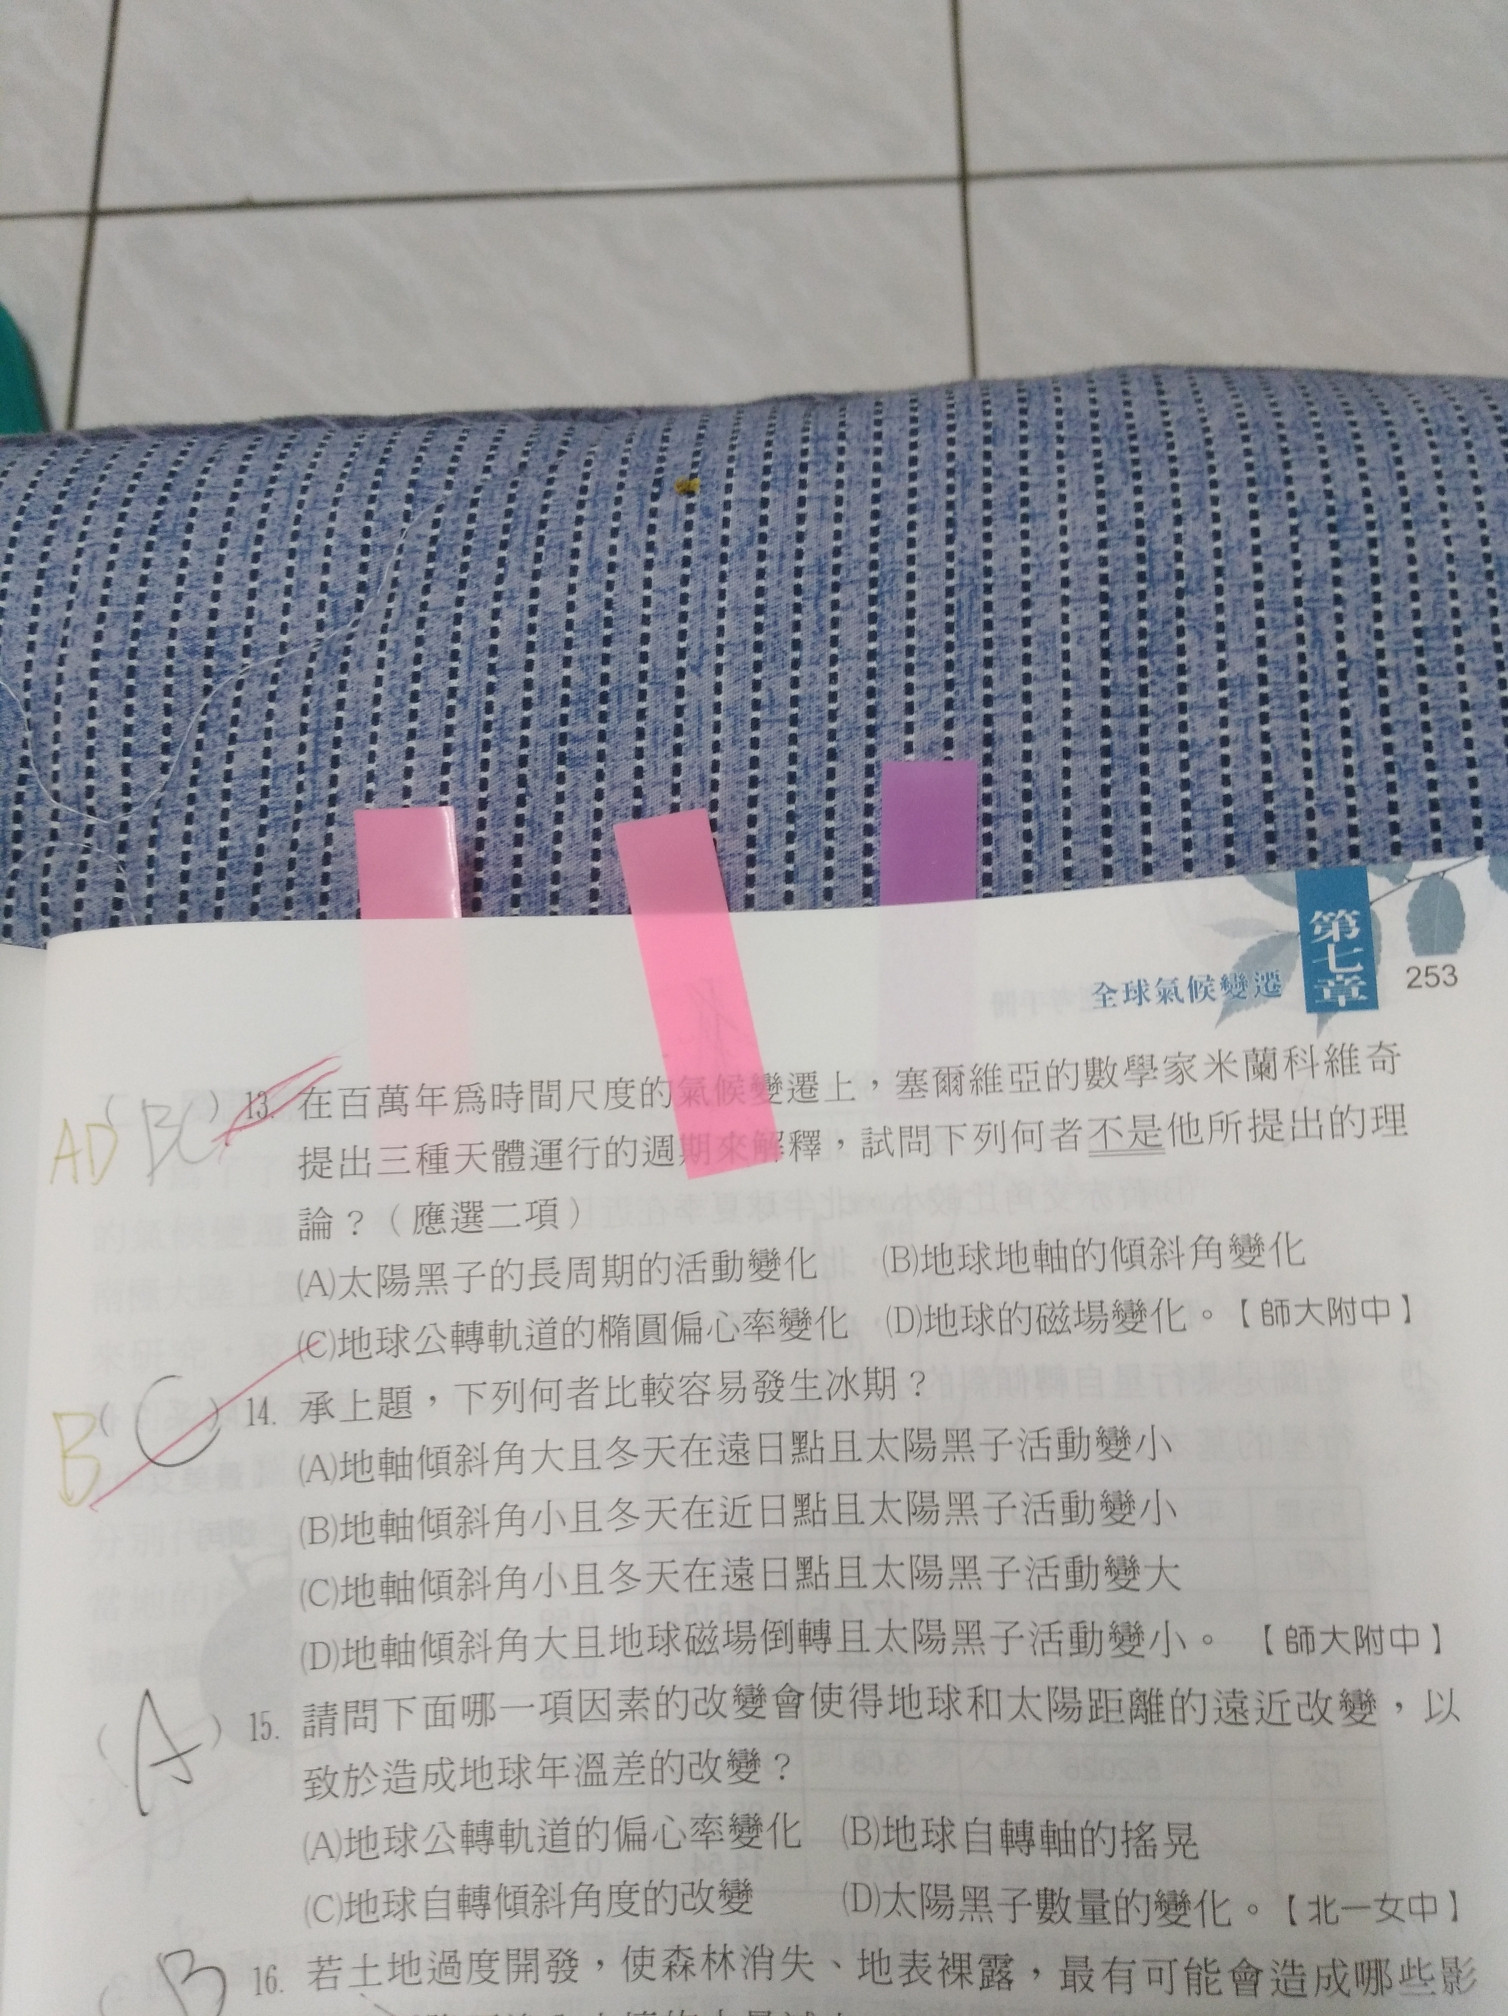 第七章
全球氣候變遷
253
AD ( BC ) 13. 在百萬年為時間尺度的氣候變遷上，塞爾維亞的數學家米蘭科維奇
提出三種天體運行的週期來解釋，試問下列何者不是他所提出的理
論？（應選二項）
(A)太陽黑子的長周期的活動變化 (B)地球地軸的傾斜角變化
(C)地球公轉軌道的橢圓偏心率變化 (D)地球的磁場變化。【師大附中】
B ( C ) 14. 承上題，下列何者比較容易發生冰期？
(A)地軸傾斜角大且冬天在遠日點且太陽黑子活動變小
(B)地軸傾斜角小且冬天在近日點且太陽黑子活動變小
(C)地軸傾斜角小且冬天在遠日點且太陽黑子活動變大
(D)地軸傾斜角大且地球磁場倒轉且太陽黑子活動變小。【師大附中】
( A ) 15. 請問下面哪一項因素的改變會使得地球和太陽距離的遠近改變，以
致於造成地球年溫差的改變？
(A)地球公轉軌道的偏心率變化 (B)地球自轉軸的搖晃
(C)地球自轉傾斜角度的改變 (D)太陽黑子數量的變化。【北一女中】
( B 16. 若土地過度開發，使森林消失、地表裸露，最有可能會造成哪些影